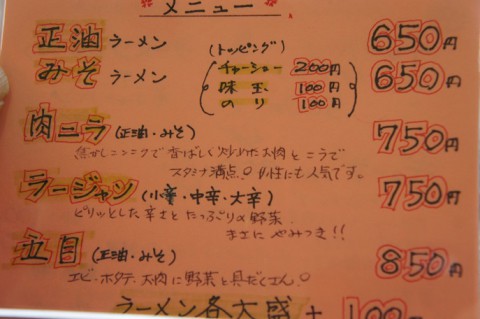 メニュー
正油ラーメン 650円
(トッピング)
みそラーメン 650円
チャーシュー 200円
味玉 100円
のり 100円
肉ニラ (正油・みそ) 750円
焦がしニンニクで香ばしく炒めた肉とニラで
スタミナ満点。女性にも人気です。
ラージャン (小辛・中辛・大辛) 750円
ピリッとした辛さとたっぷりの野菜
まさにやみつき!!
五目 (正油・みそ) 850円
エビ・ホタテ・肉に野菜と具だくさん。
ラーメン各大盛 + 100円